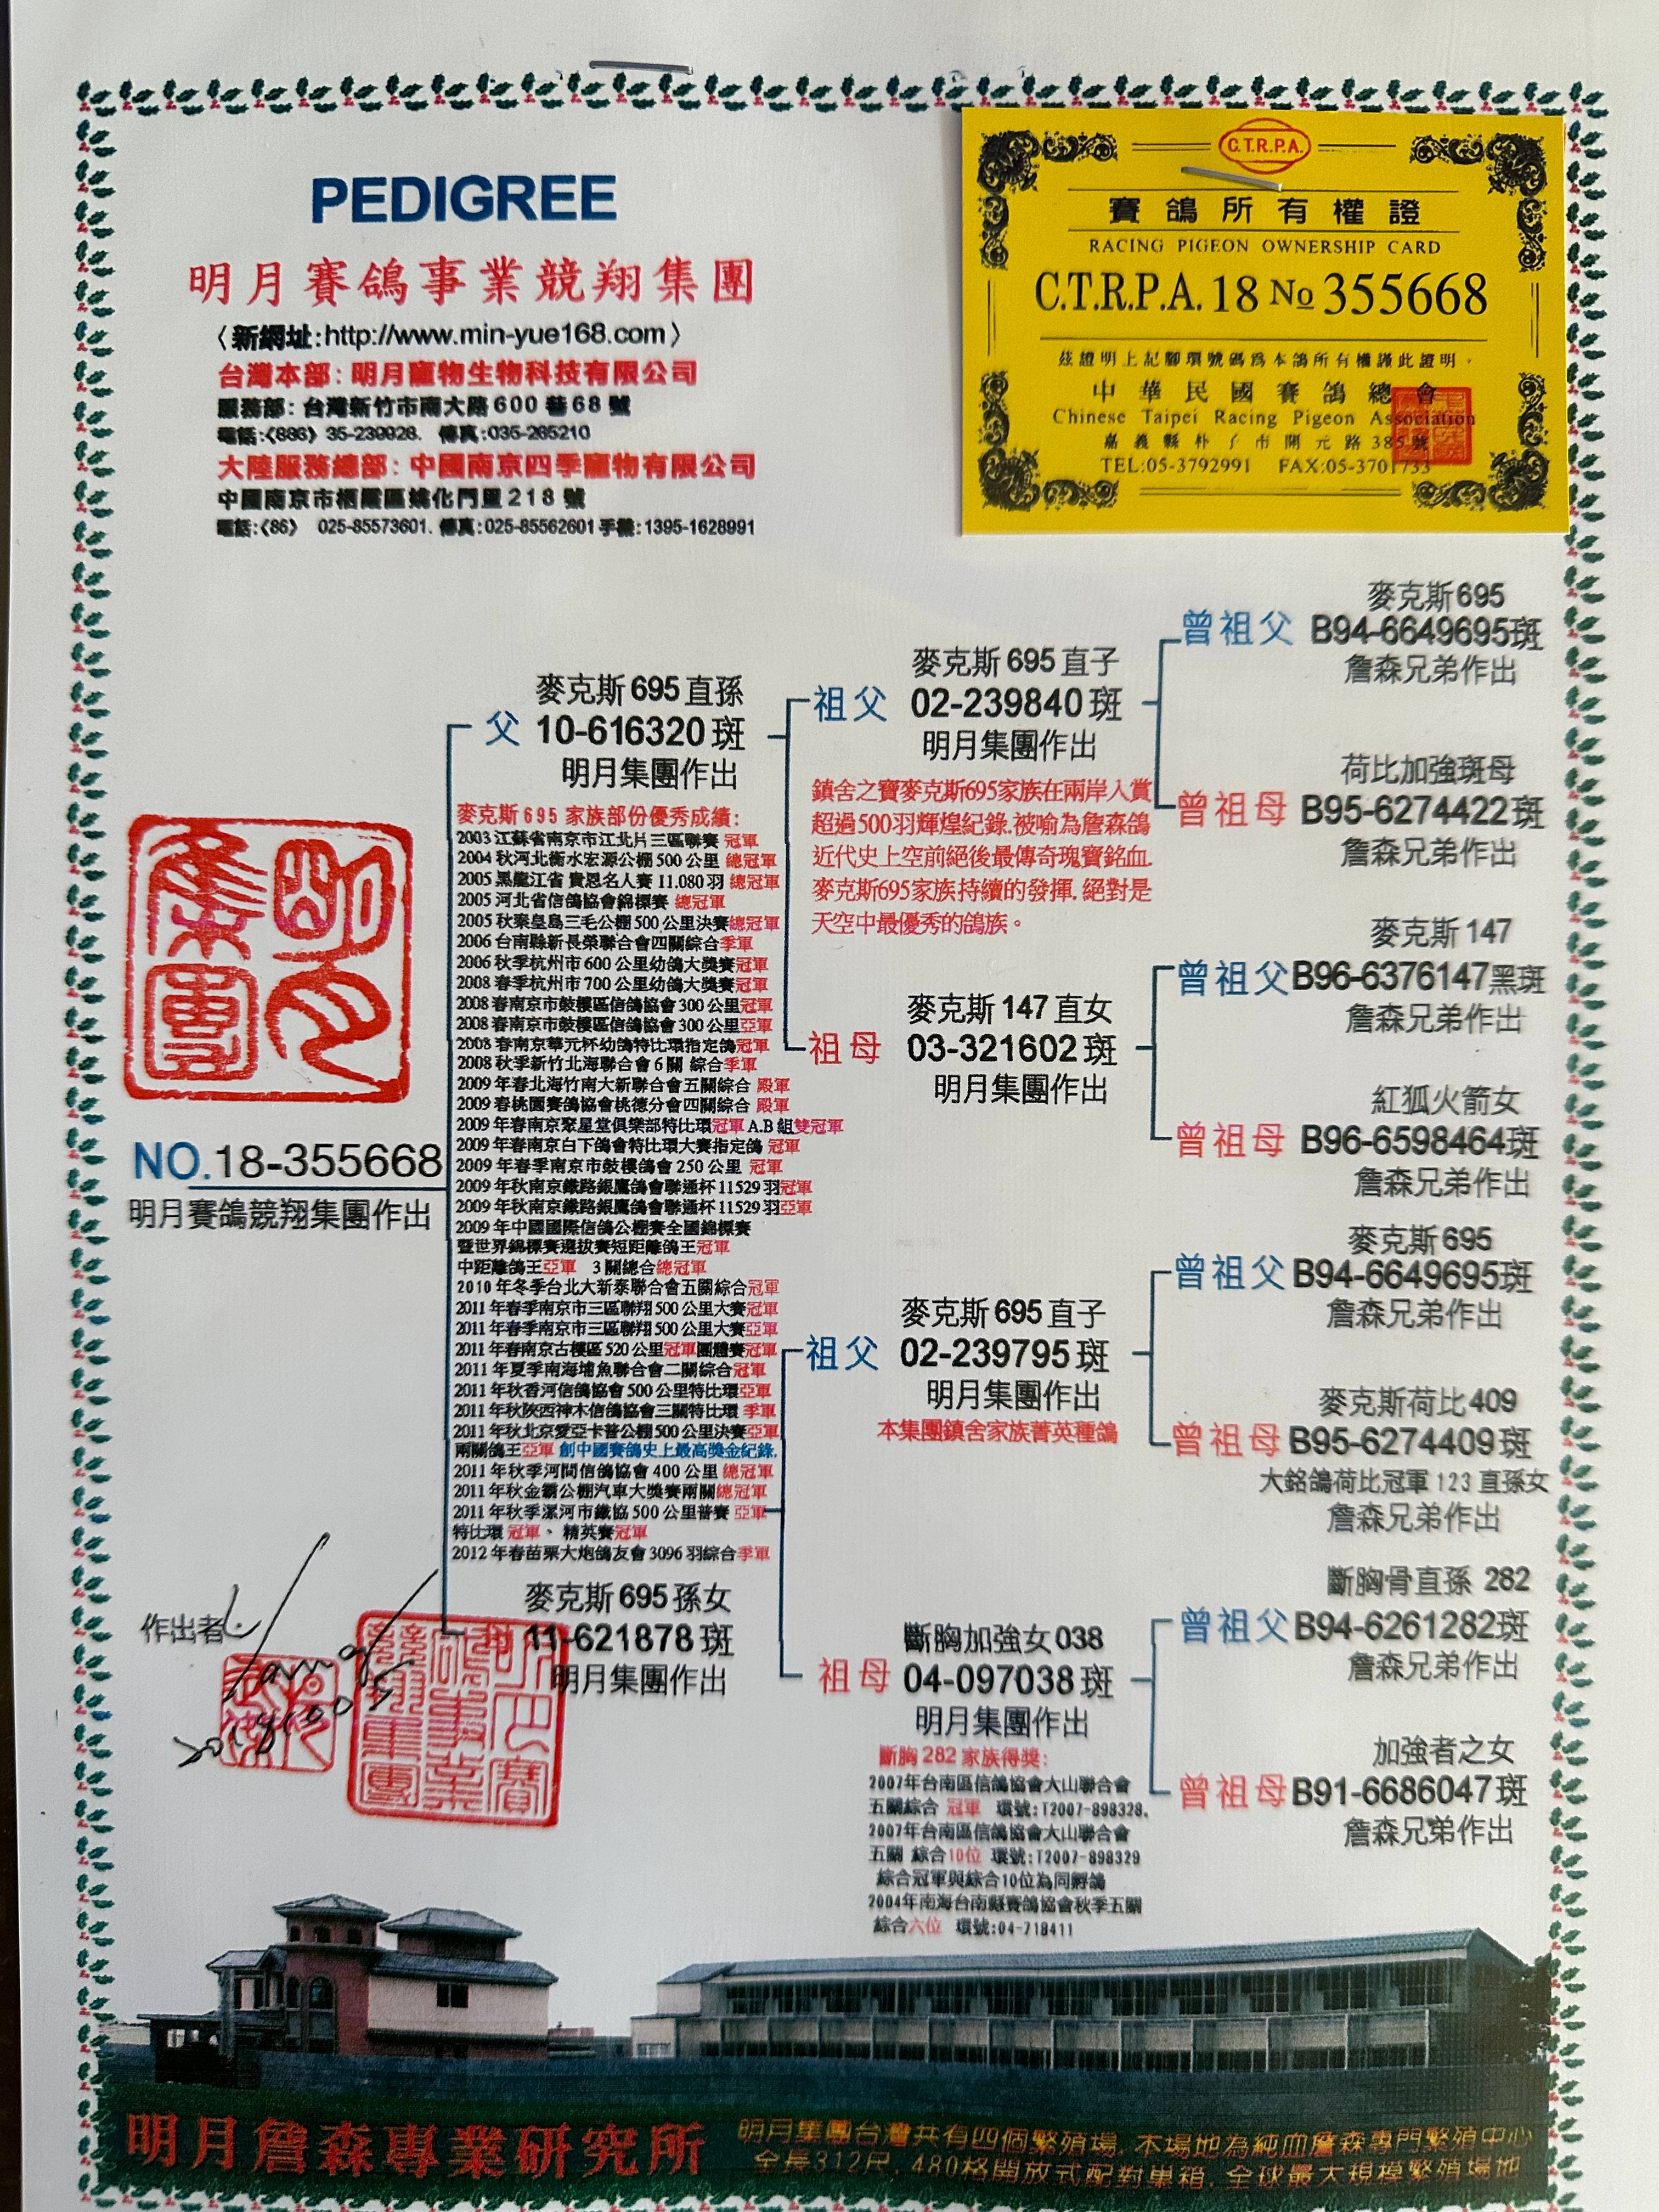 PEDIGREE
明月賽鴿事業競翔集團
〈新網址:http://www.min-yue168.com〉
台灣本部:明月寵物生物科技有限公司
服務部:台灣新竹市南大路600巷68號
電話:〈886〉35-239928. 傳真:035-265210
大陸服務總部:中國南京四季寵物有限公司
中國南京市栖霞區姚化門里218號
電話:〈86〉 025-85573601. 傳真:025-85562601手機:1395-1628991
C.T.R.P.A.
賽鴿所有權證
RACING PIGEON OWNERSHIP CARD
C.T.R.P.A. 18 No 355668
茲證明上記腳環號碼為本鴿所有權謹此證明。
中華民國賽鴿總會
Chinese Taipei Racing Pigeon Association
嘉義縣朴子市開元路385號
TEL:05-3792991 FAX:05-3701733
明月集團
NO.18-355668
明月賽鴿競翔集團作出
麥克斯695直孫
父 10-616320斑
明月集團作出
麥克斯695 家族部份優秀成績:
2003江蘇省南京市江北片三區聯賽 冠軍
2004秋河北衡水宏源公棚500公里 總冠軍
2005黑龍江省 貴恩名人賽 11.080羽 總冠軍
2005河北省信鴿協會錦標賽 總冠軍
2005秋秦皇島三毛公棚500公里決賽總冠軍
2006台南縣新長榮聯合會四關綜合季軍
2006秋季杭州市600公里幼鴿大獎賽冠軍
2008春季杭州市700公里幼鴿大獎賽冠軍
2008春南京市鼓樓區信鴿協會300公里冠軍
2008春南京市鼓樓區信鴿協會300公里亞軍
2008春南京華元杯幼鴿特比環指定鴿冠軍
2008秋季新竹北海聯合會6關 綜合季軍
2009年春北海竹南大新聯合會五關綜合 殿軍
2009春桃園賽鴿協會桃德分會四關綜合 殿軍
2009年春南京聚星堂俱樂部特比環冠軍A.B組雙冠軍
2009年春南京白下鴿會特比環大賽指定鴿 冠軍
2009年春季南京市鼓樓鴿會250公里 冠軍
2009年秋南京鐵路銀鷹鴿會聯通杯11529羽冠軍
2009年秋南京鐵路銀鷹鴿會聯通杯11529羽亞軍
2009年中國國際信鴿公棚賽全國錦標賽
暨世界錦標賽選拔賽短距離鴿王冠軍
中距離鴿王亞軍 3關總合總冠軍
2010年冬季台北大新泰聯合會五關綜合冠軍
2011年春季南京市三區聯翔500公里大賽冠軍
2011年春季南京市三區聯翔500公里大賽亞軍
2011年春南京古樓區520公里冠軍團體賽冠軍
2011年夏季南海埔魚聯合會二關綜合冠軍
2011年秋香河信鴿協會500公里特比環亞軍
2011年秋陝西神木信鴿協會三關特比環 季軍
2011年秋北京愛亞卡普公棚500公里決賽亞軍
兩關鴿王亞軍 創中國賽鴿史上最高獎金紀錄.
2011年秋季河間信鴿協會400公里 總冠軍
2011年秋金霸公棚汽車大獎賽兩關總冠軍
2011年秋季漯河市鐵協500公里普賽 亞軍
特比環冠軍、精英賽冠軍
2012年春苗栗大炮鴿友會3096羽綜合季軍
麥克斯695孫女
母 11-621878斑
明月集團作出
作出者
麥克斯695直子
祖父 02-239840斑
明月集團作出
鎮舍之寶麥克斯695家族在兩岸入賞
超過500羽輝煌紀錄.被喻為詹森鴿
近代史上空前絕後最傳奇瑰寶銘血.
麥克斯695家族持續的發揮.絕對是
天空中最優秀的鴿族。
麥克斯147直女
祖母 03-321602斑
明月集團作出
麥克斯695直子
祖父 02-239795斑
明月集團作出
本集團鎮舍家族菁英種鴿
斷胸加強女038
祖母 04-097038斑
明月集團作出
斷胸282家族得獎:
2007年台南區信鴿協會大山聯合會
五關綜合 冠軍 環號:T2007-898328.
2007年台南區信鴿協會大山聯合會
五關 綜合10位 環號:T2007-898329
綜合冠軍與綜合10位為同孵鴿
2004年南海台南縣賽鴿協會秋季五關
綜合六位 環號:04-718411
麥克斯695
曾祖父 B94-6649695斑
詹森兄弟作出
荷比加強斑母
曾祖母 B95-6274422斑
詹森兄弟作出
麥克斯147
曾祖父B96-6376147黑斑
詹森兄弟作出
紅狐火箭女
曾祖母 B96-6598464斑
詹森兄弟作出
麥克斯695
曾祖父B94-6649695斑
詹森兄弟作出
麥克斯荷比409
曾祖母B95-6274409斑
大銘鴿荷比冠軍123直孫女
詹森兄弟作出
斷胸骨直孫 282
曾祖父B94-6261282斑
詹森兄弟作出
加強者之女
曾祖母B91-6686047斑
詹森兄弟作出
明月詹森專業研究所
明月集團台灣共有四個繁殖場.本場地為純血詹森專門繁殖中心
全長312尺,480格開放式配對巢箱.全球最大規模繁殖場地